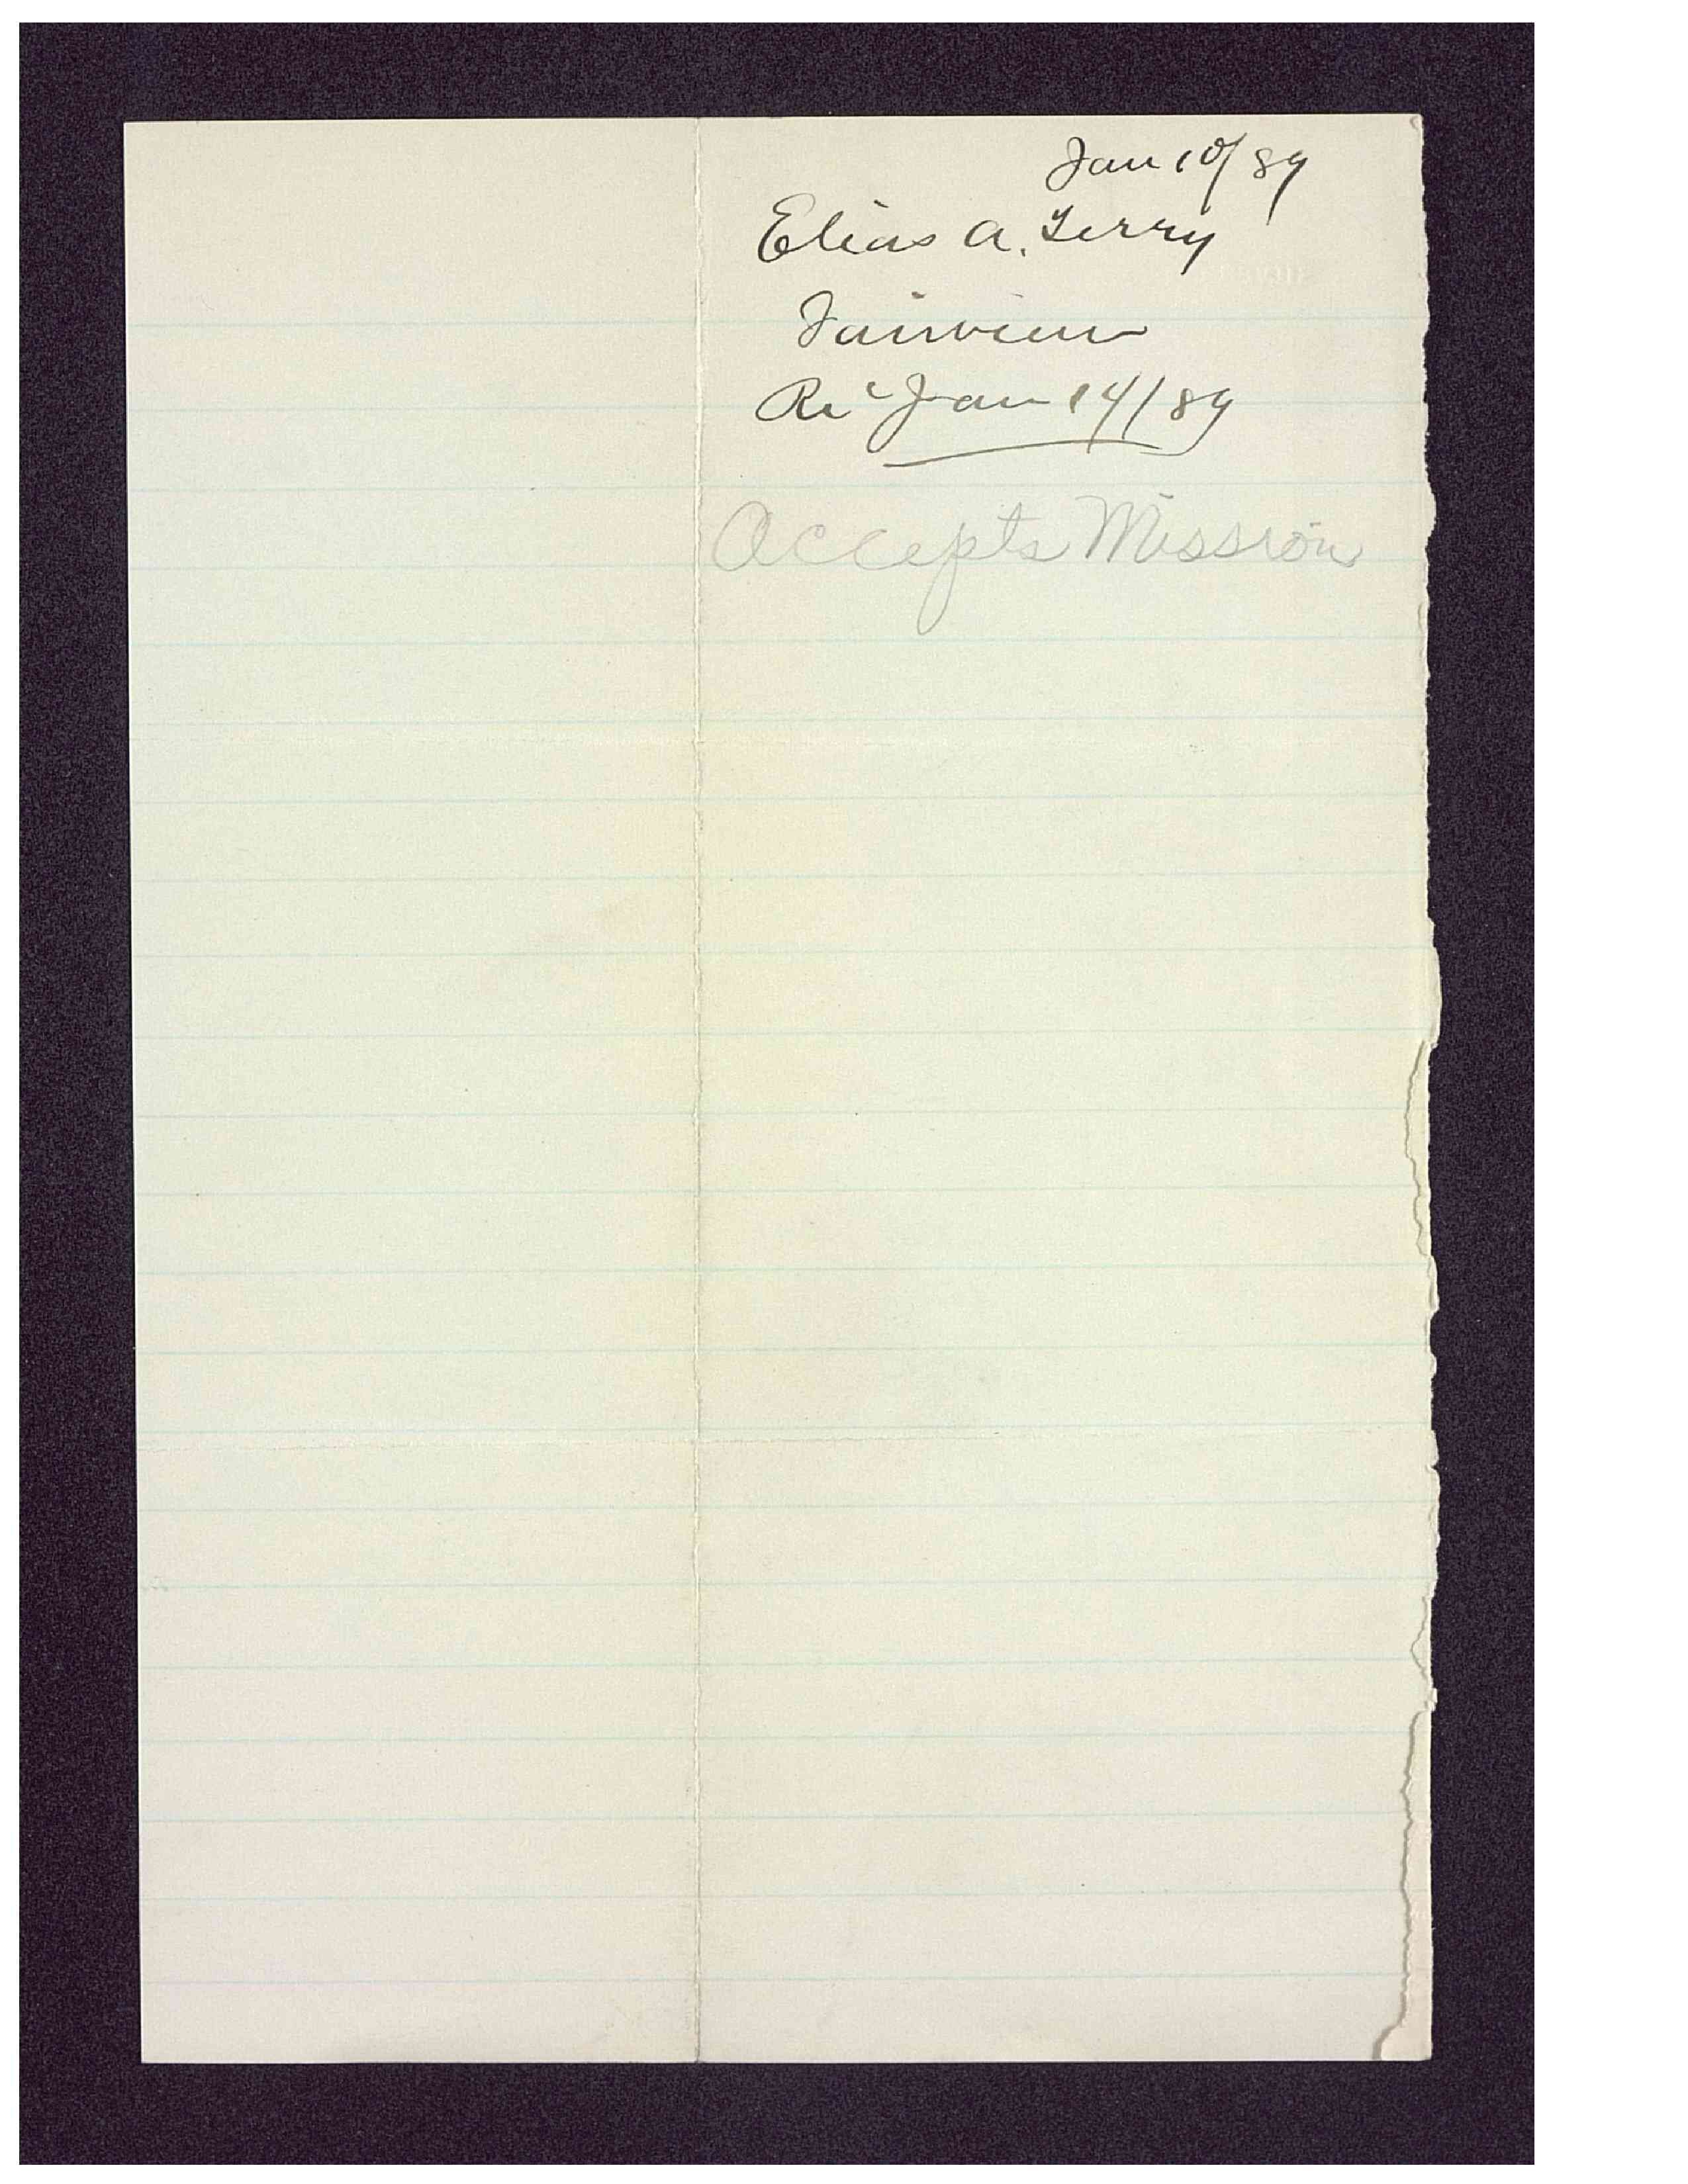 Jan 10/89
Elias A. Terry
Fairview
Rec Jan 14/89
Accepts Mission